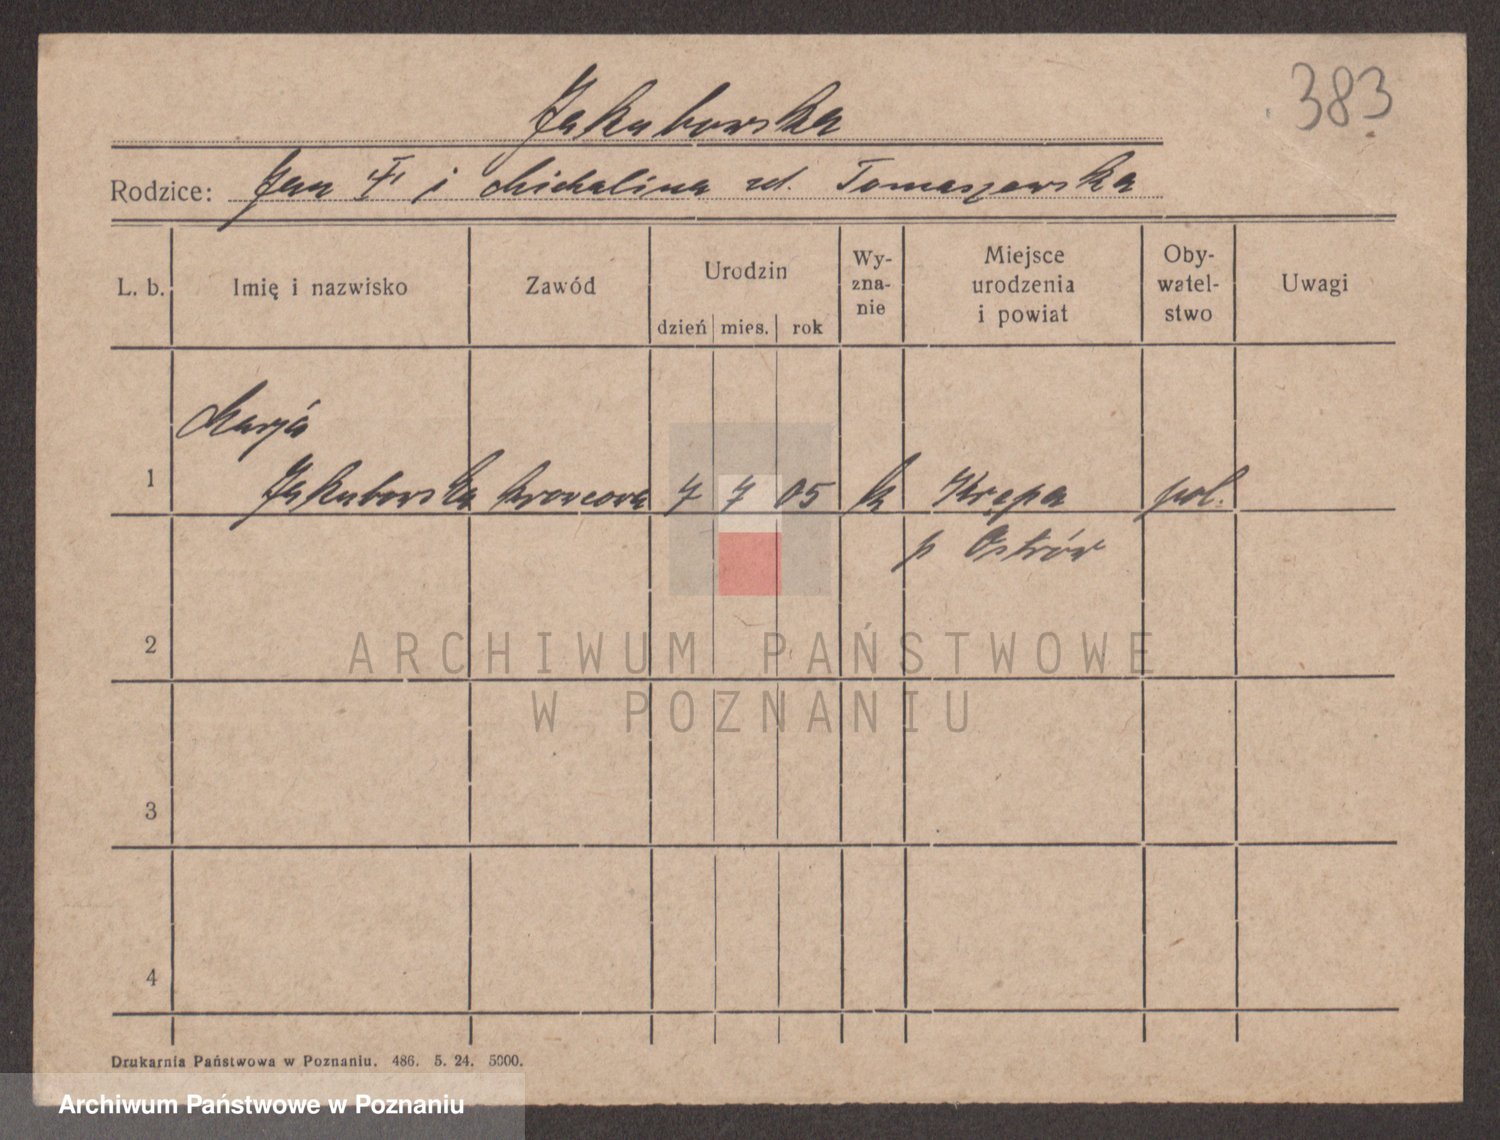 383
Jakubowska
Rodzice: Jan † i Michalina zd. Tomaszewska
L. b. Imię i nazwisko Zawód Urodzin dzień mies. rok Wy-zna-nie Miejsce urodzenia i powiat Oby-watel-stwo Uwagi
Marja
1 Jakubowska krawcowa 7 7 05 k Krępa pol.
p Ostrów
2
ARCHIWUM PAŃSTWOWE
W POZNANIU
3
4
Drukarnia Państwowa w Poznaniu. 486. 5. 24. 5000.
Archiwum Państwowe w Poznaniu